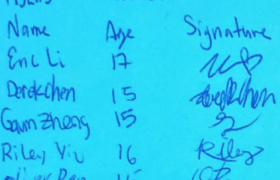 Name Age Signature
Eric Li 17
Derek chen 15 Derek Chen
Gavin Zheng 15
Riley Yiu 16 Riley